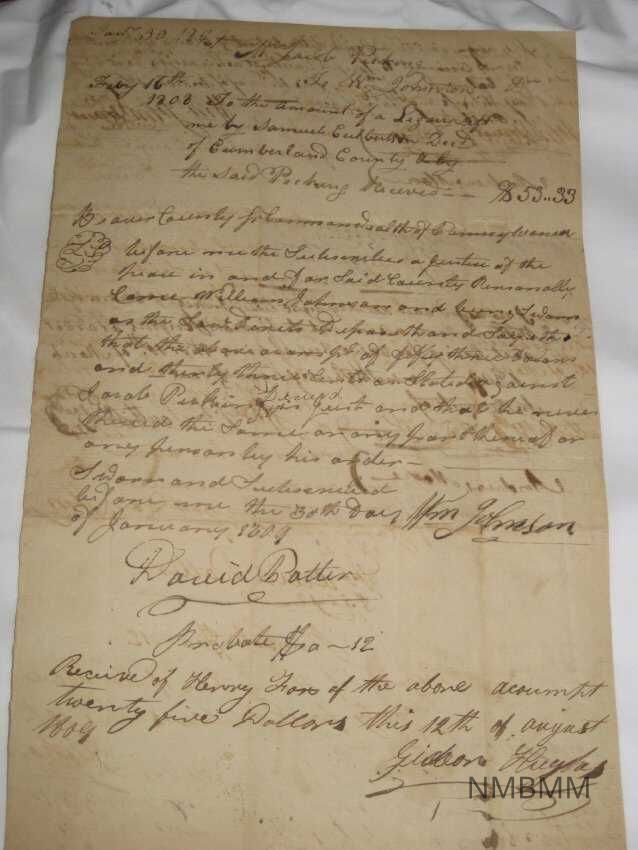 Jany 30 1809
Jacob Perkins
Feby 16th To Wm Johnson Dr
1808 To the amount of a Legacy left
me by Samuel Culbertson Decd
of Cumberland County & by
the Said Perkins Received — $53..33
Beaver County Commonwealth of Pennsylvania
before me the Subscriber a Justice of the
peace in and for Said County Personally
Came William Johnson and being Sworn
as the Law Directs Deposeth and Sayeth
that the above account of fifty three Dollars
and thirty three Cents as Stated against
Jacob Perkins Decead is Just and that he never
Recived the Same or any part thereof or
any person by his order —
Sworn and Subscribed
before me the 30th Day Wm Johnson
of January 1809
David Potter
Probate $0-12
Receive of Henry Fors of the above acoumpt
twenty five Dollars this 12th of august
1809
Gideon
NMBMM